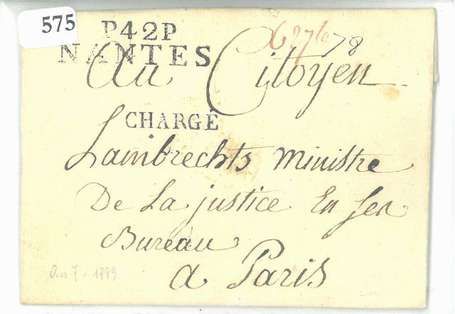 575
P42P
NANTES
78
Au Citoyen
CHARGÉ
Lambrechts Ministre
De La justice En Son
Bureau
a Paris
An 7 - 1799